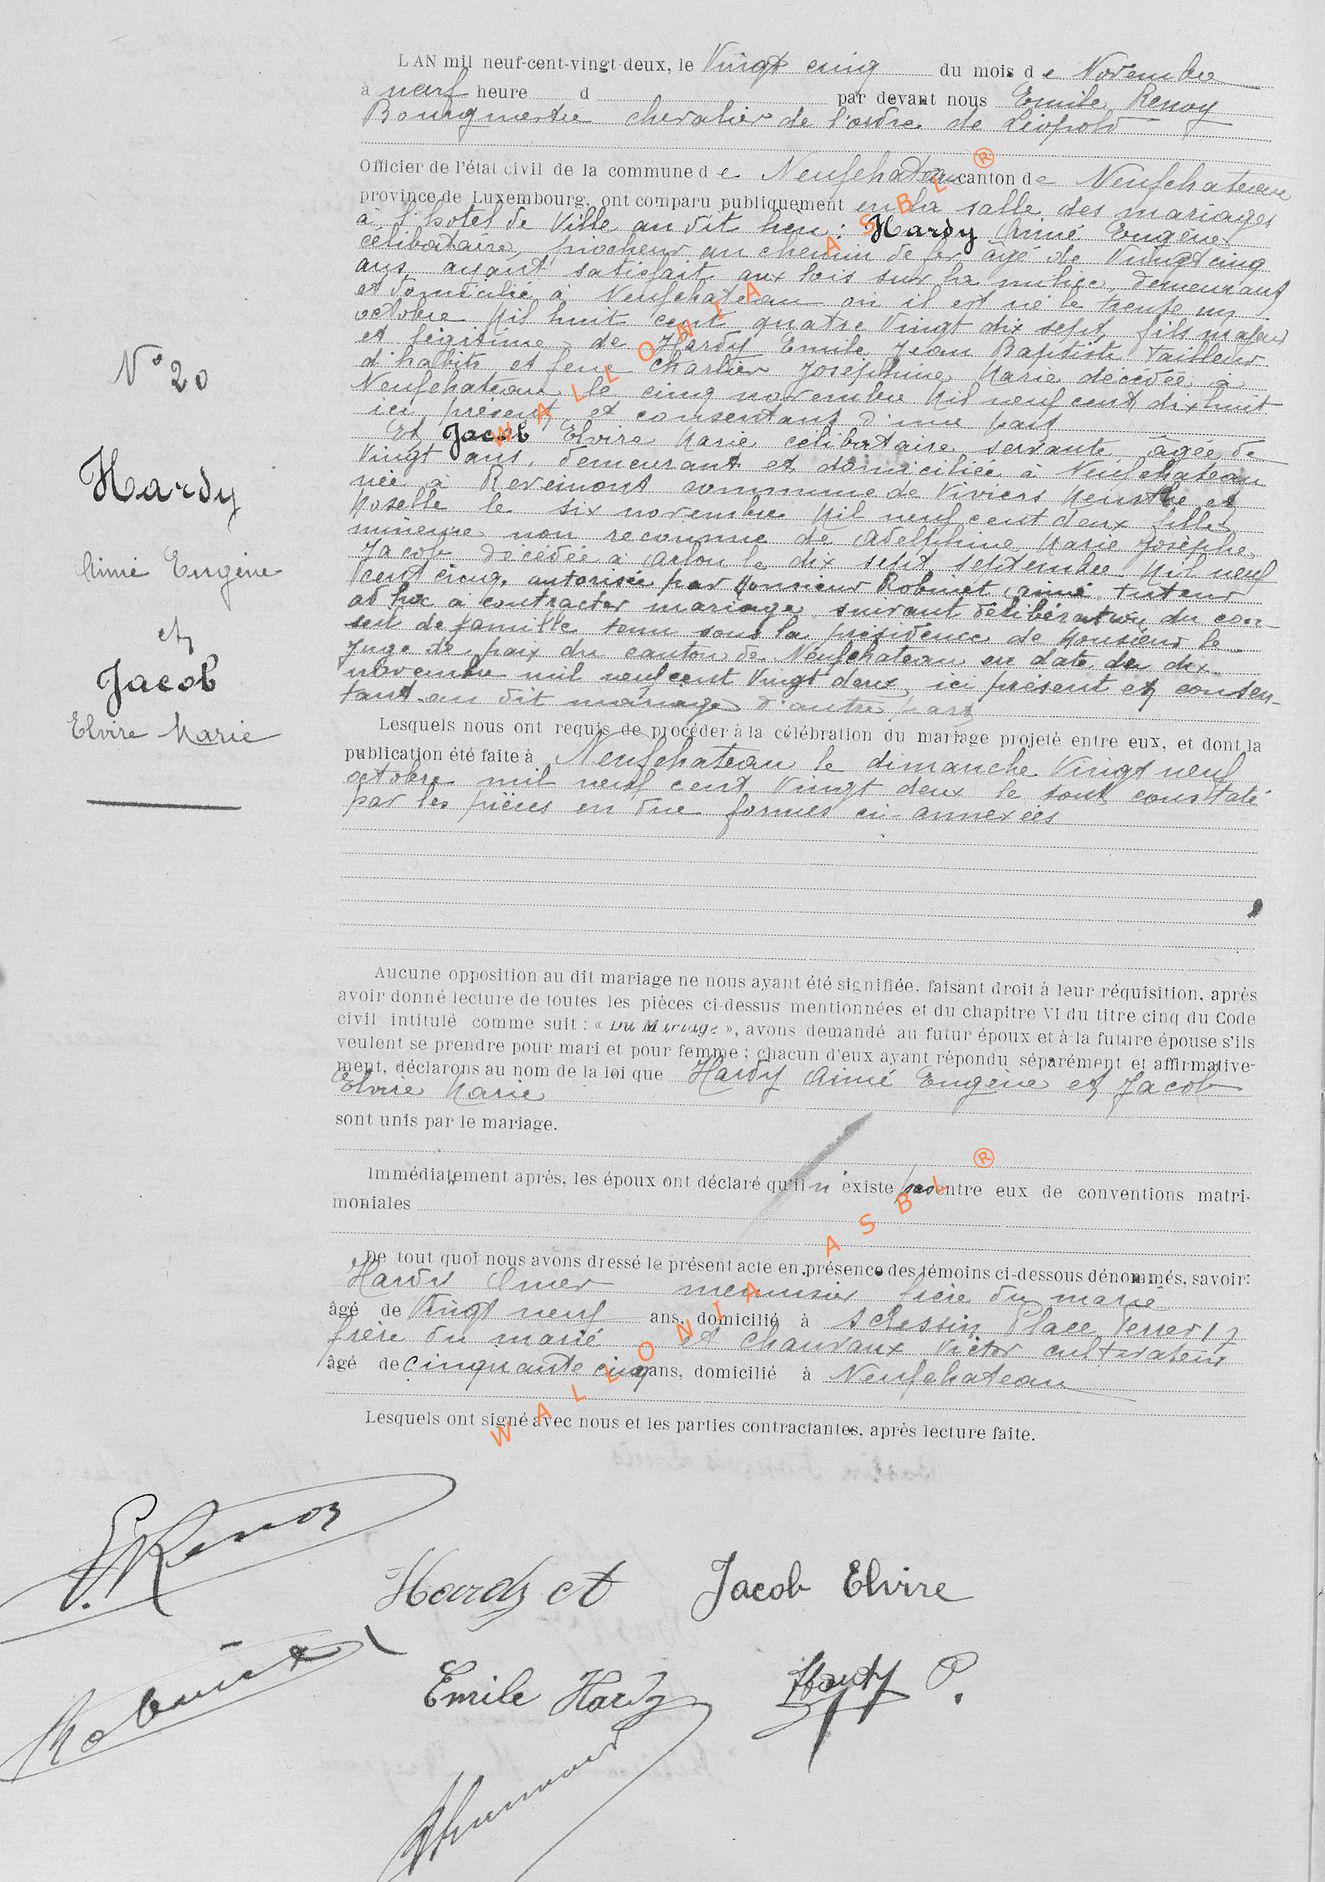 L'AN mil neuf-cent-vingt-deux, le Vingt cinq du mois de Novembre
à neuf heure d par devant nous Emile Renoy
Bourgmestre chevalier de l'ordre de Léopold
Officier de l'état civil de la commune de Neufchateau canton de Neufchateau
province de Luxembourg, ont comparu publiquement en la salle des mariages
à l'hotel de Ville au dit lieu : Hardy Aimé Eugène
célibataire, piocheur au chemin de fer âgé de Vingt cinq
ans, ayant satisfait aux lois sur la milice, demeurant
et domicilié à Neufchateau où il est né le trente un
octobre Mil huit cent quatre Vingt dix sept, fils majeur
et légitime de Hardy Emile Jean Baptiste tailleur
d'habits et feue Charlier Joséphine Marie décédée à
Neufchateau le cinq novembre Mil neuf cent dixhuit
ici présent et consentant d'une part
Et Jacob Elvire Marie célibataire servante, âgée de
Vingt ans, demeurant et domiciliée à Neufchateau
née à Revemont commune de Viviers Meurthe et
Moselle le six novembre Mil neuf cent deux fille
mineure non reconnue de Adelphine Marie Josèphe
Jacob décédée à Arlon le dix sept septembre Mil neuf
cent cinq, autorisée par Monsieur Robinet Aimé tuteur
ad hoc a contracter mariage suivant délibération du con-
seil de famille tenu sous la présidence de Monsieur le
Juge de paix du canton de Neufchateau en date du dix
novembre mil neuf cent Vingt deux, ici présent et consen-
tant au dit mariage d'autre part
N° 20
Hardy
Aimé Eugène
et
Jacob
Elvire Marie
Lesquels nous ont requis de procéder à la célébration du mariage projeté entre eux, et dont la
publication été faite à Neufchateau le dimanche Vingt neuf
octobre mil neuf cent Vingt deux le tout constaté
par les pièces en due formes ci-annexées
Aucune opposition au dit mariage ne nous ayant été signifiée, faisant droit à leur réquisition, après
avoir donné lecture de toutes les pièces ci-dessus mentionnées et du chapitre VI du titre cinq du Code
civil intitulé comme suit : « Du Mariage », avons demandé au futur époux et à la future épouse s'ils
veulent se prendre pour mari et pour femme ; chacun d'eux ayant répondu séparément et affirmative-
ment, déclarons au nom de la loi que Hardy Aimé Eugène et Jacob
Elvire Marie
sont unis par le mariage.
Immédiatement après, les époux ont déclaré qu'il n'existe pas entre eux de conventions matri-
moniales
De tout quoi nous avons dressé le présent acte en présence des témoins ci-dessous dénommés, savoir:
Hardy Omer menuisier frère du marié
âgé de Vingt neuf ans, domicilié à Sclessin Place Ferrer 17
frère du marié et Chauvaux Victor cultivateur
âgé de cinquante cinq ans, domicilié à Neufchateau
Lesquels ont signé avec nous et les parties contractantes, après lecture faite.
E. Renoy
Hardy et Jacob Elvire
Robinet
Emile Hardy Hardy O.
WALLONIA ASBL ®
WALLONIA ASBL ®